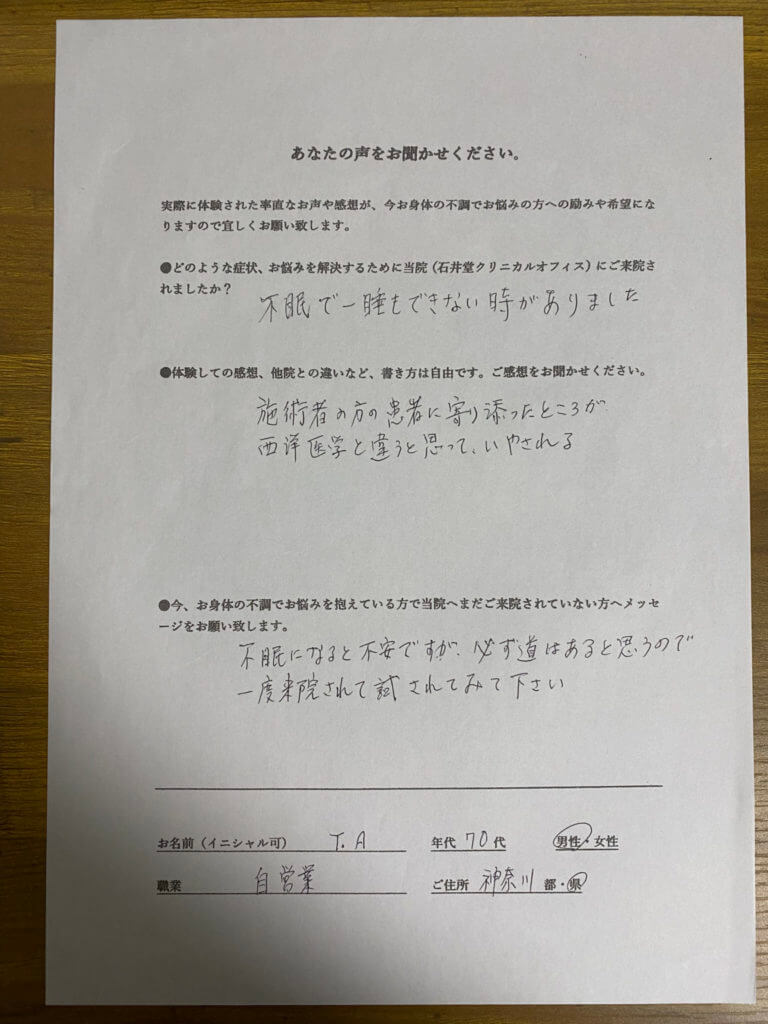 あなたの声をお聞かせください。
実際に体験された率直なお声や感想が、今お身体の不調でお悩みの方への励みや希望にな
りますので宜しくお願い致します。
●どのような症状、お悩みを解決するために当院（石井堂クリニカルオフィス）にご来院さ
れましたか？
不眠で一睡もできない時がありました
●体験しての感想、他院との違いなど、書き方は自由です。ご感想をお聞かせください。
施術者の方の患者に寄り添ったところが
西洋医学と違うと思って、いやされる
●今、お身体の不調でお悩みを抱えている方で当院へまだご来院されていない方へメッセ
ージをお願い致します。
不眠になると不安ですが、必ず道はあると思うので
一度来院されて試されてみて下さい
お名前（イニシャル可） T.A 年代 70 代 男性・女性
職業 自営業 ご住所 神奈川 都・県